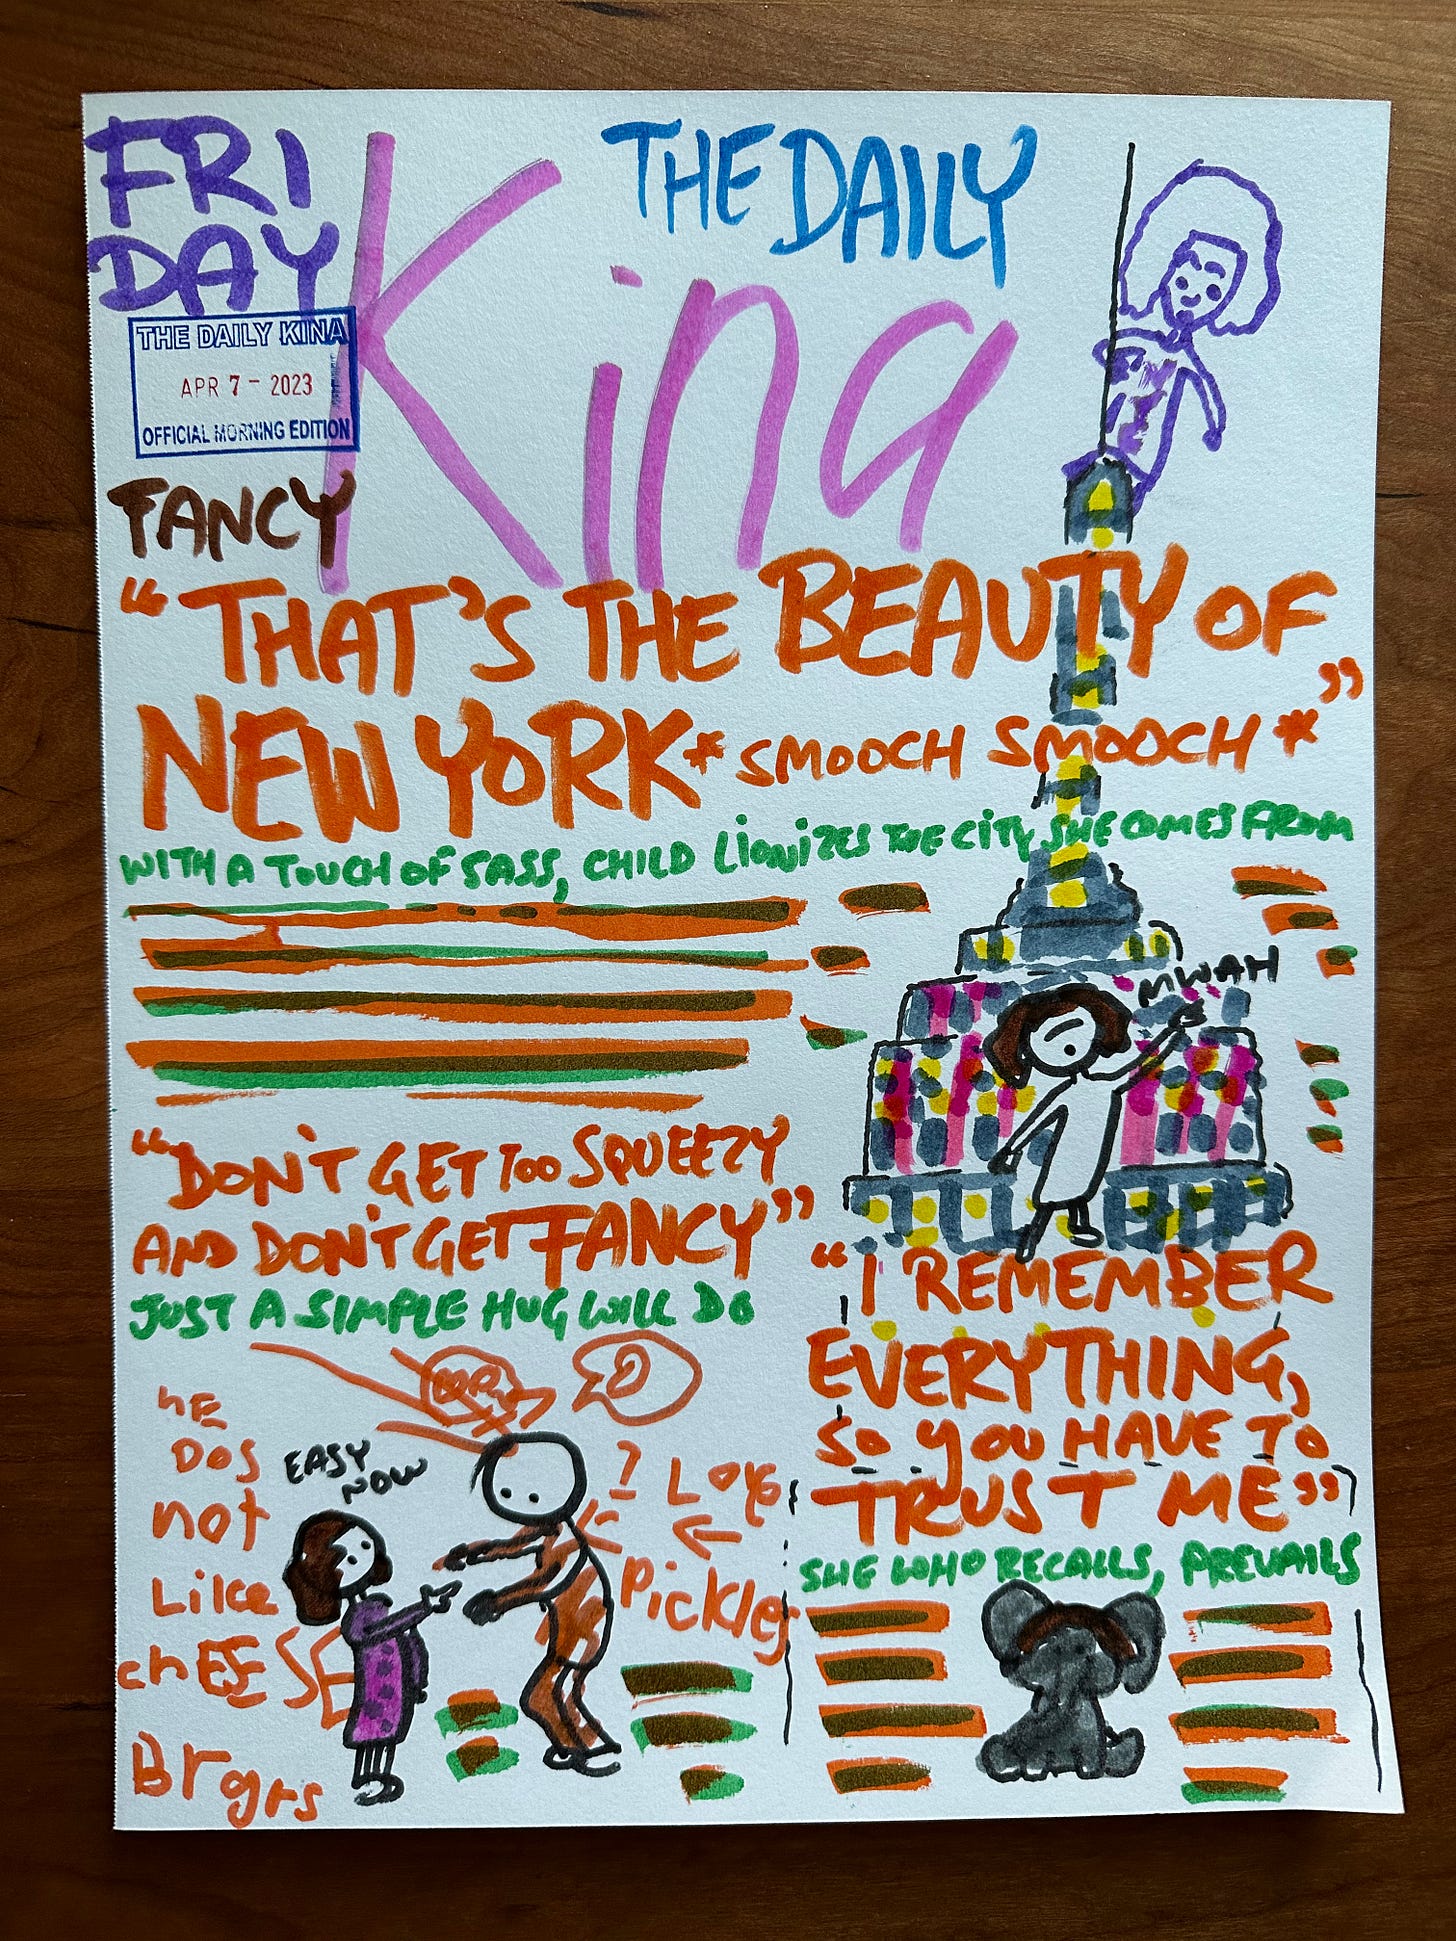 FRI
DAY
THE DAILY
Kina
THE DAILY KINA
APR 7 - 2023
OFFICIAL MORNING EDITION
FANCY
"THAT'S THE BEAUTY OF
NEW YORK *SMOOCH SMOOCH*"
WITH A TOUCH OF SASS, CHILD LIONIZES THE CITY SHE COMES FROM
MWAH
"DON'T GET TOO SQUEEZY
AND DON'T GET FANCY"
JUST A SIMPLE HUG WILL DO
"I REMEMBER
EVERYTHING,
SO YOU HAVE TO
TRUST ME"
SHE WHO RECALLS, PREVAILS
EASY
NOW
hE
DOS
not
Like
chEESE
Brgrs
? LOVE
Pickles